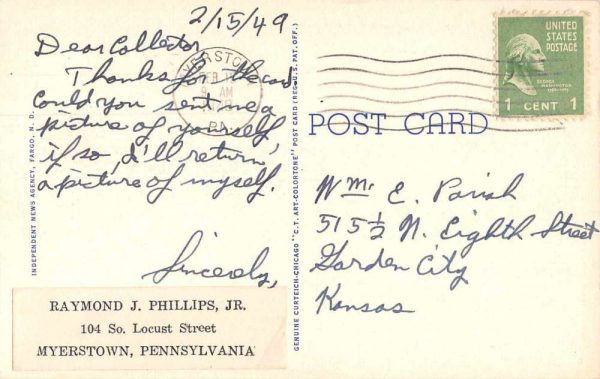 2/15/49
Dear Collector
Thanks for the card
Could you sent me a
picture of yourself,
if so, I'll return
a picture of myself.
Sincerely,
RAYMOND J. PHILLIPS, JR.
104 So. Locust Street
MYERSTOWN, PENNSYLVANIA
INDEPENDENT NEWS AGENCY, FARGO, N. D.
GENUINE CURTEICH-CHICAGO "C.T. ART-COLORTONE" POST CARD (REG. U.S. PAT. OFF.)
POST CARD
UNITED
STATES
POSTAGE
GEORGE
WASHINGTON
1 CENT 1
AM
PA.
Wm. E. Parish
515 ½ N. Eighth Street
Garden City
Kansas